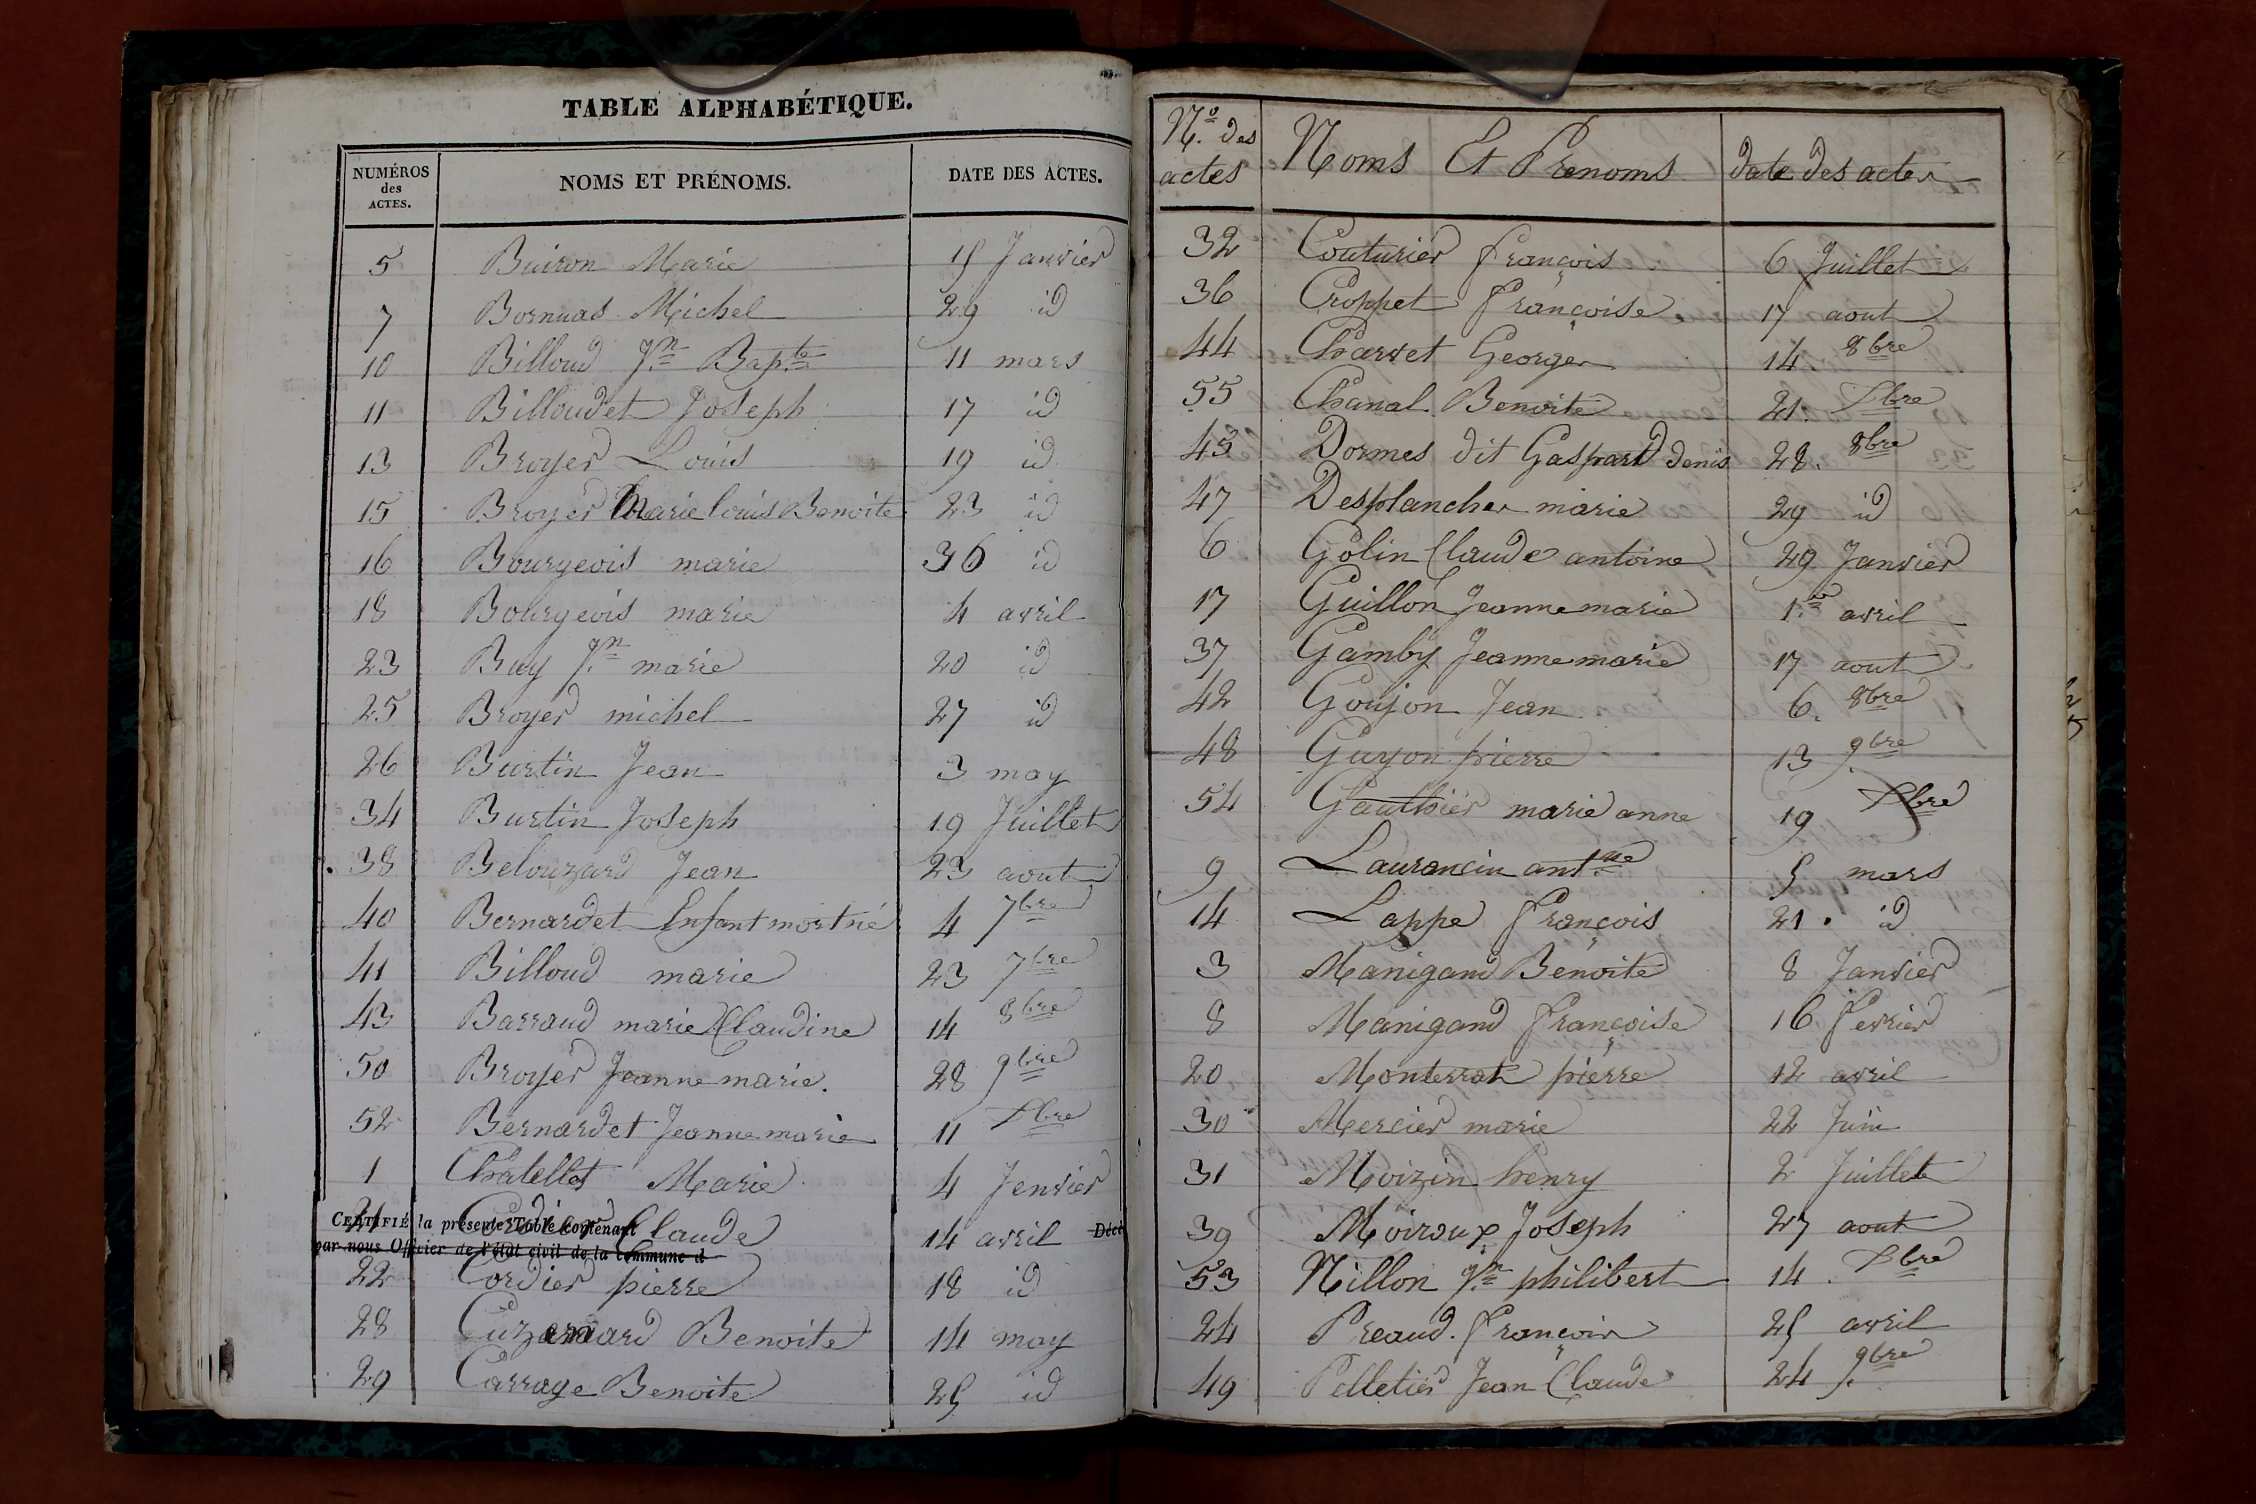 TABLE ALPHABÉTIQUE.
NUMÉROS des ACTES. NOMS ET PRÉNOMS. DATE DES ACTES.
5 Buiron Marie 15 Janvier
7 Bornuas Michel 29 id
10 Billoud Jn Bapte 11 mars
11 Billoudet Joseph 17 id
13 Broyer Louis 19 id
15 Broyer Marie louis Benoite 23 id
16 Bourgeois marie 36 id
18 Bourgeois marie 4 avril
23 Buy Jn marie 20 id
25 Broyer michel 27 id
26 Burtin Jean 3 may
34 Burtin Joseph 19 Juillet
38 Belouzard Jean 23 aout
40 Bernardet Enfant mort né 4 7bre
41 Billoud marie 23 7bre
43 Barraud marie Claudine 14 8bre
50 Broyer Jeanne marie. 28 9bre
52 Bernardet Jeanne marie 11 Xbre
1 Chatellet Marie 4 Jenvier
21 Cordier Claude 14 avril
CERTIFIÉ la présente Table contenant Décè
par nous Officier de l'état civil de la commune d
22 Cordier pierre 18 id
28 Benoite 14 may
29 Carrage Benoite 25 id
No. des actes Noms Et Prenoms date des actes
32 Couturier François 6 Juillet
36 Croppet Françoise 17 aout
44 Charvet George 14 8bre
55 Chanal Benoite 21. Xbre
45 Dormes dit Gaspard denis 28. 8bre
47 Desplanches marie 29 id
6 Golin Claude antoine 29 Janvier
17 Guillon Jeanne marie 1er avril
37 Gamby Jeanne marie 17 aout
42 Goujon Jean 6. 8bre
48 Guyon pierre 13 9bre
54 Gaulthier marie anne 19 Xbre
9 Laurancin antne 5 mars
14 Lappe François 21. id
3 Manigand Benoite 8 Janvier
8 Manigand Françoise 16 Fevrier
20 Monterrat pierre 12 avril
30 Mercier marie 22 Juin
31 Moizin henry 2 Juillet
39 Moiroux Joseph 25 aout
53 Nillon Jn philibert 14. Xbre
24 Preaud. François 25 avril
49 Pelletier Jean Claude 24 9bre